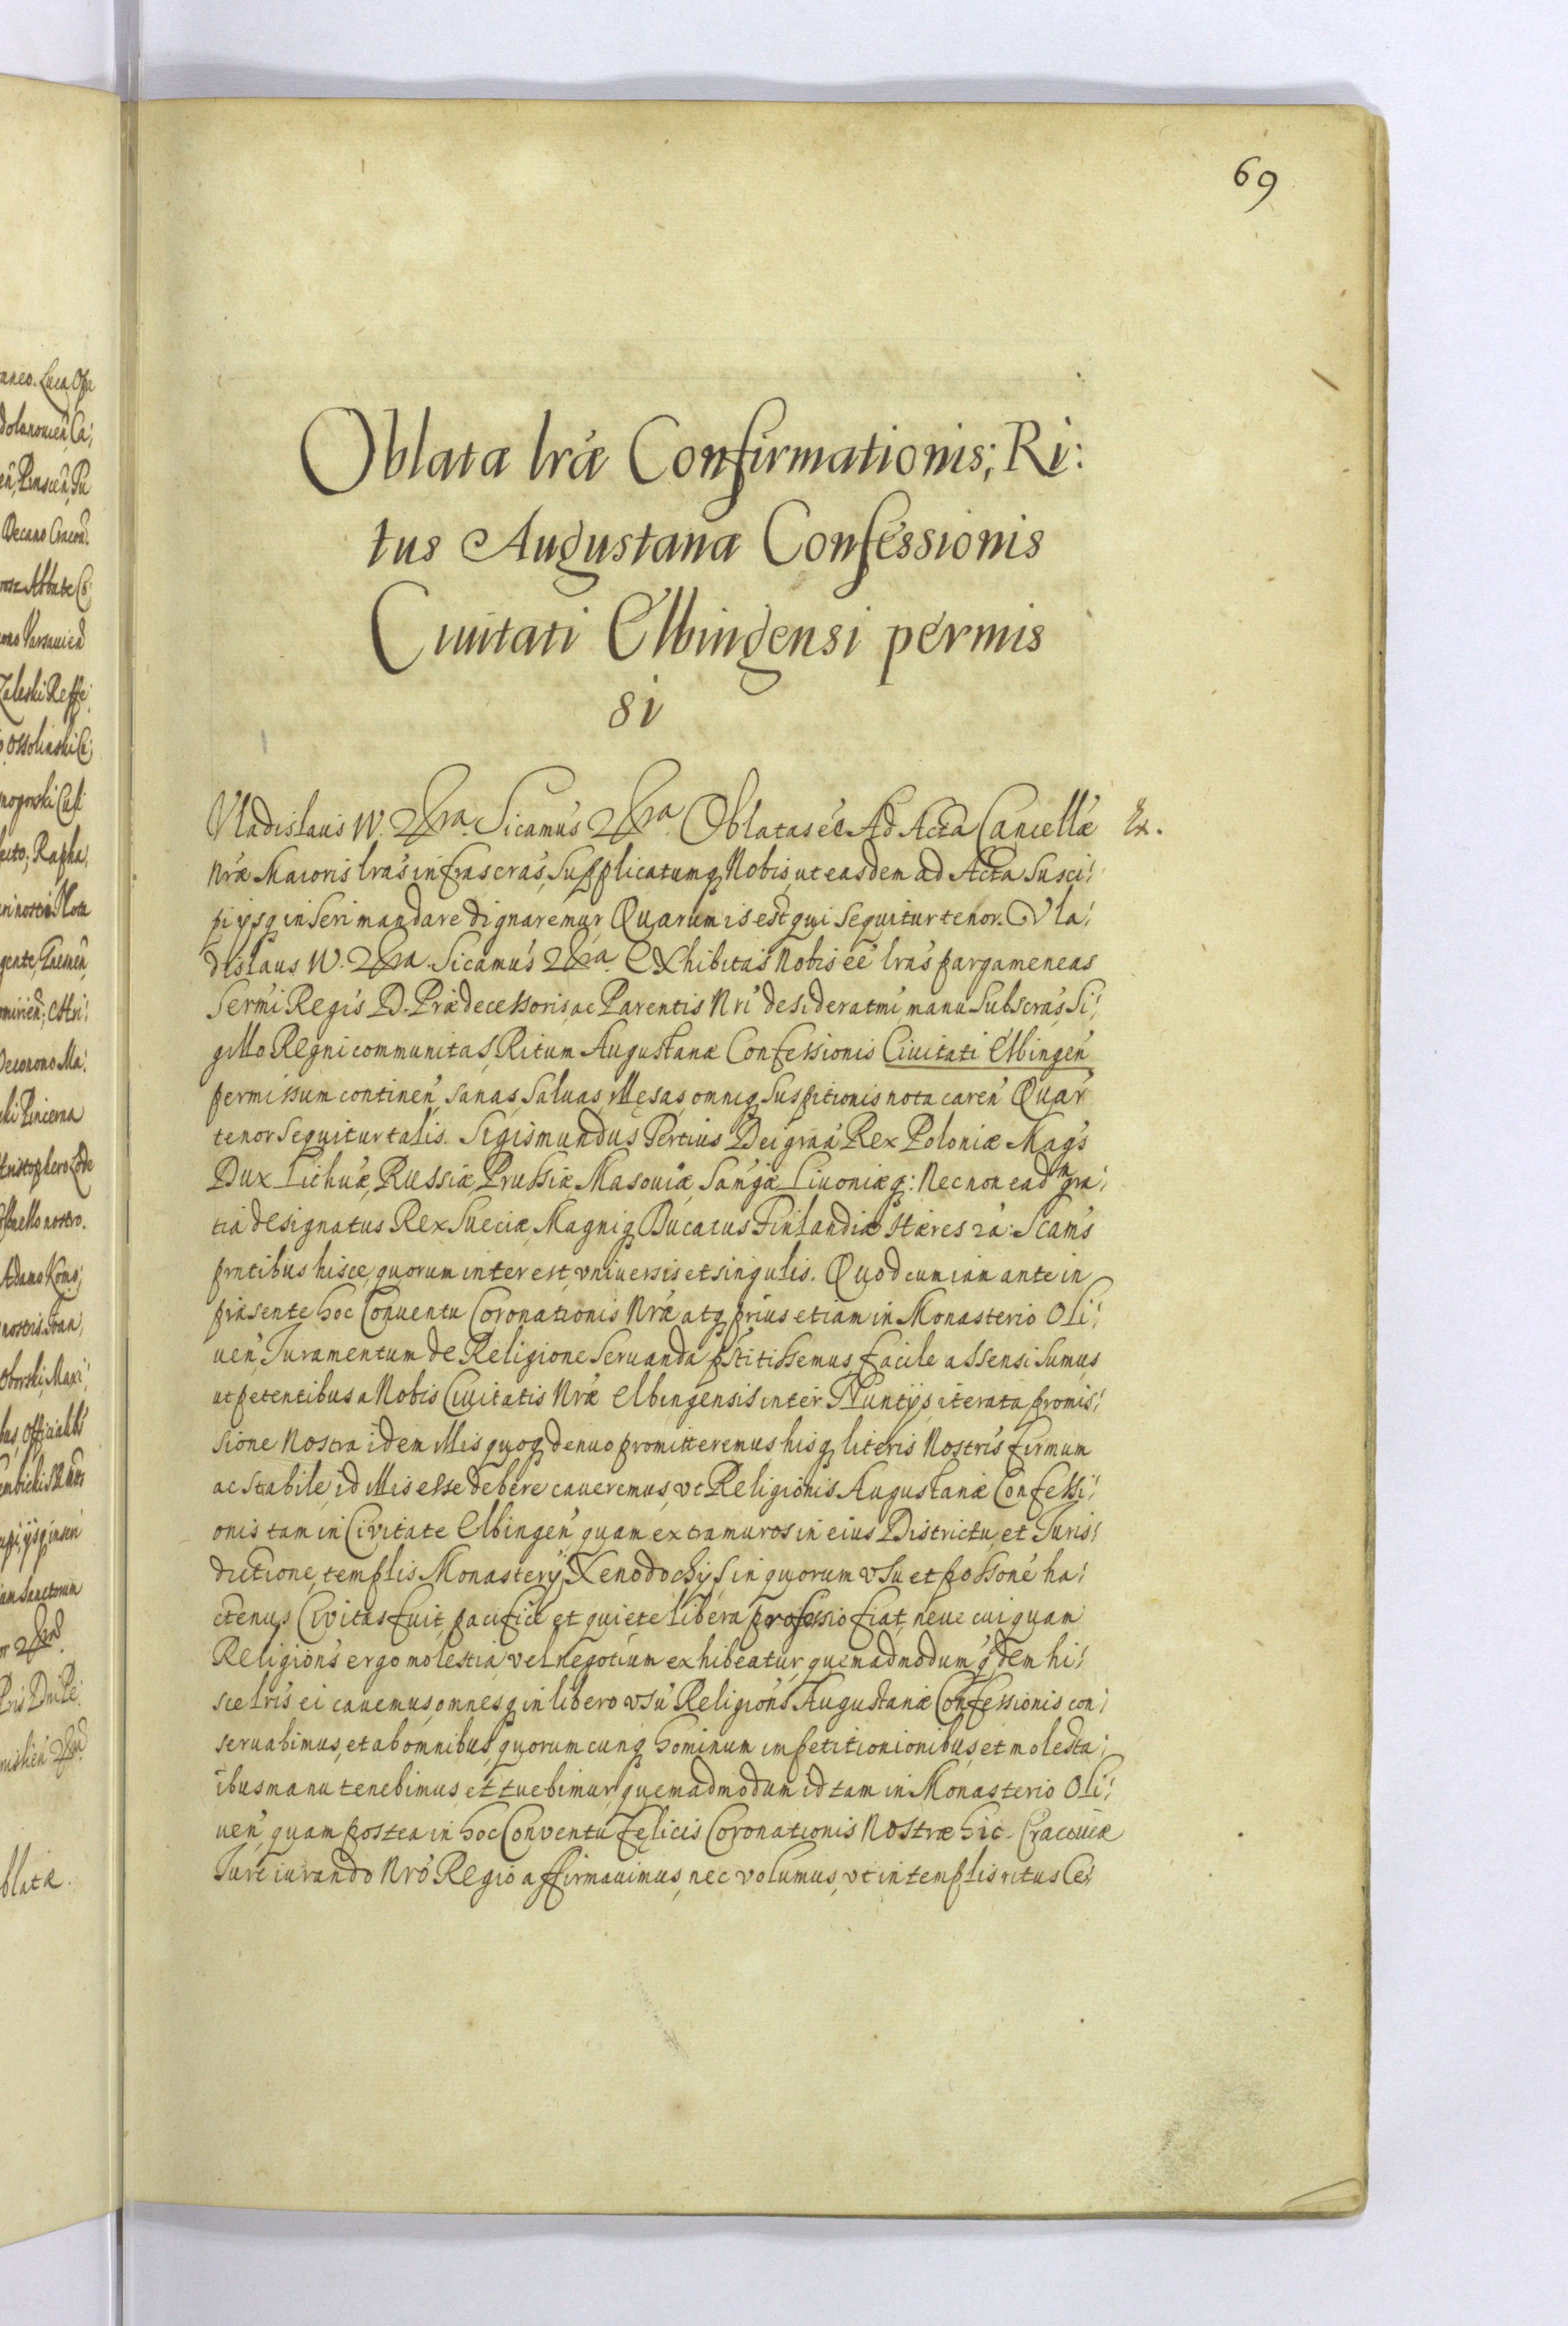 69
Oblata lrae Confirmationis; Ri:
tus Augustanae Confessionis
Civitati Elbingensi permis
si
Vladislaus IV. Sicamus Oblatas eê Ad Acta Cancellae
Nrae Maioris lras infrascras, Supplicatumq Nobis, ut easdem ad Acta Susci:
pi ysq inseri mandare dignaremur, Quarum is est qui Sequitur tenor. Vla:
dislaus IV. Sicamus Exhibitas Nobis eê lras pargameneas
Sermi Regis D. Praedecessoris, ac Parentis Nri desideratmi manu Subscras, Si:
gillo Regni communitas, Ritum Augustanae Confessionis Civitati Elbingen
permissum continen, Sanas, Saluas, illesas, omniq Suspitionis nota caren Quar
tenor Sequitur talis. Sigismundus Tertius Dei graa Rex Poloniae Mags
Dux Lithuae, Russiae, Prussiae, Masouiae, Samgae Liuoniaeq: Nec non ead gra:
tia designatus Rex Sueciae, Magniq Ducatus Finlandiae Haeres Scams
pntibus hisce, quorum interest, vniuersis et singulis. Quod cum iam ante in
praesente hoc Conuentu Coronationis Nrae atq prius etiam in Monasterio Oli:
uen Iuramentum de Religione Seruanda pstitissemus, facile assensi Sumus,
ut petentibus a Nobis Ciuitatis Nrae Elbingensis inter Nuntys, iterata promis:
sione Nostra idem illis quoq denuo promitteremus hisq literis Nostris firmum
ac Stabile, id illis esse debere caueremus, vt Religionis Augustanae Confessi:
onis tam in Civitate Elbingen quam extra muros in eius Districtu, et Iuris:
dictione, templis Monasterÿ, Xenodochÿs, in quorum vsu et possone ha:
ctenus Civitas fuit, pacifice et quiete libera professio fiat, neue cuiquam
Religions ergo molestia, vel negotium exhibeatur, quemadmodum qdem hi:
sce lris ei cauemus, omnesq in libero vsu Religions Augustanae Confessionis con:
seruabimus, et ab omnibus, quorumcunq hominum impetitionionibus, et molesta:
ibus manu tenebimus, et tuebimur, quemadmodum id tam in Monasterio Oli:
uen quam postea in hoc Conventu felicis Coronationis Nostrae hic Cracouiae
Iure iurando Nro Regio affirmauimus, nec volumus, vt in templis ritus Ce: